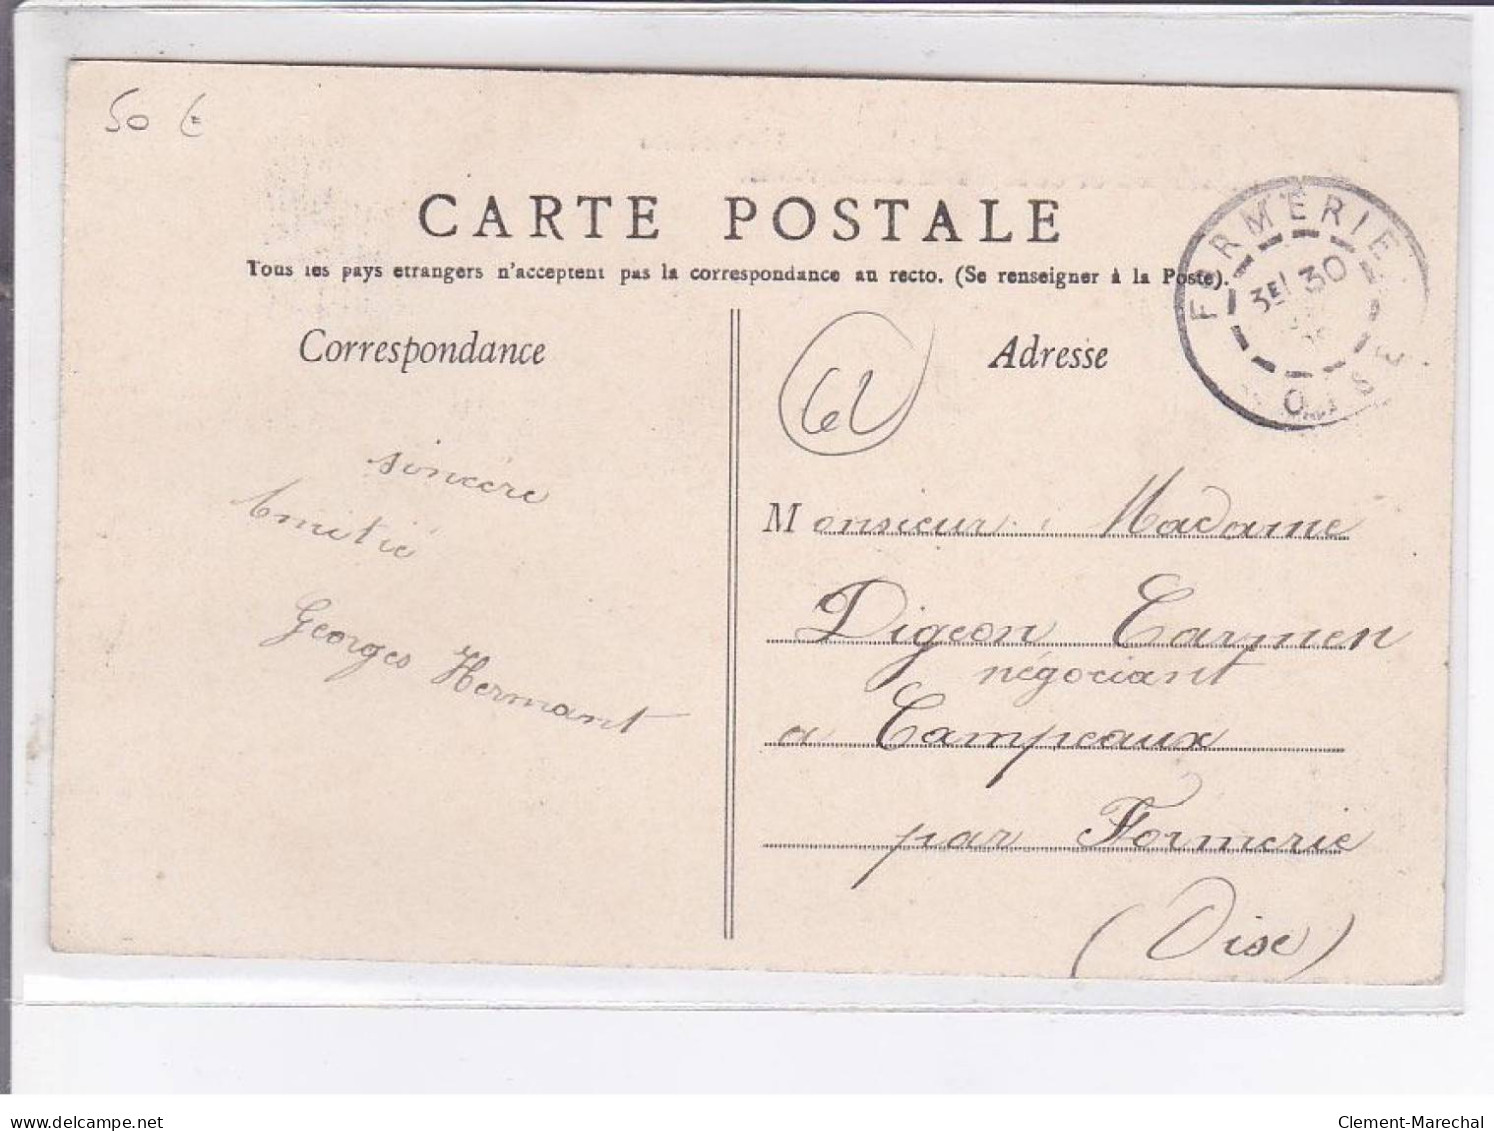 50 €
CARTE POSTALE
Tous les pays etrangers n'acceptent pas la correspondance au recto. (Se renseigner à la Poste).
Correspondance
Adresse
FORMERIE
3E 30
OISE
62
sincère
Amitié
Georges Hermant
Monsieur Madame
Digeon Carmen
négociant
a Campeaux
par Formerie
(Oise)
delcampe.net
Clement-Marechal